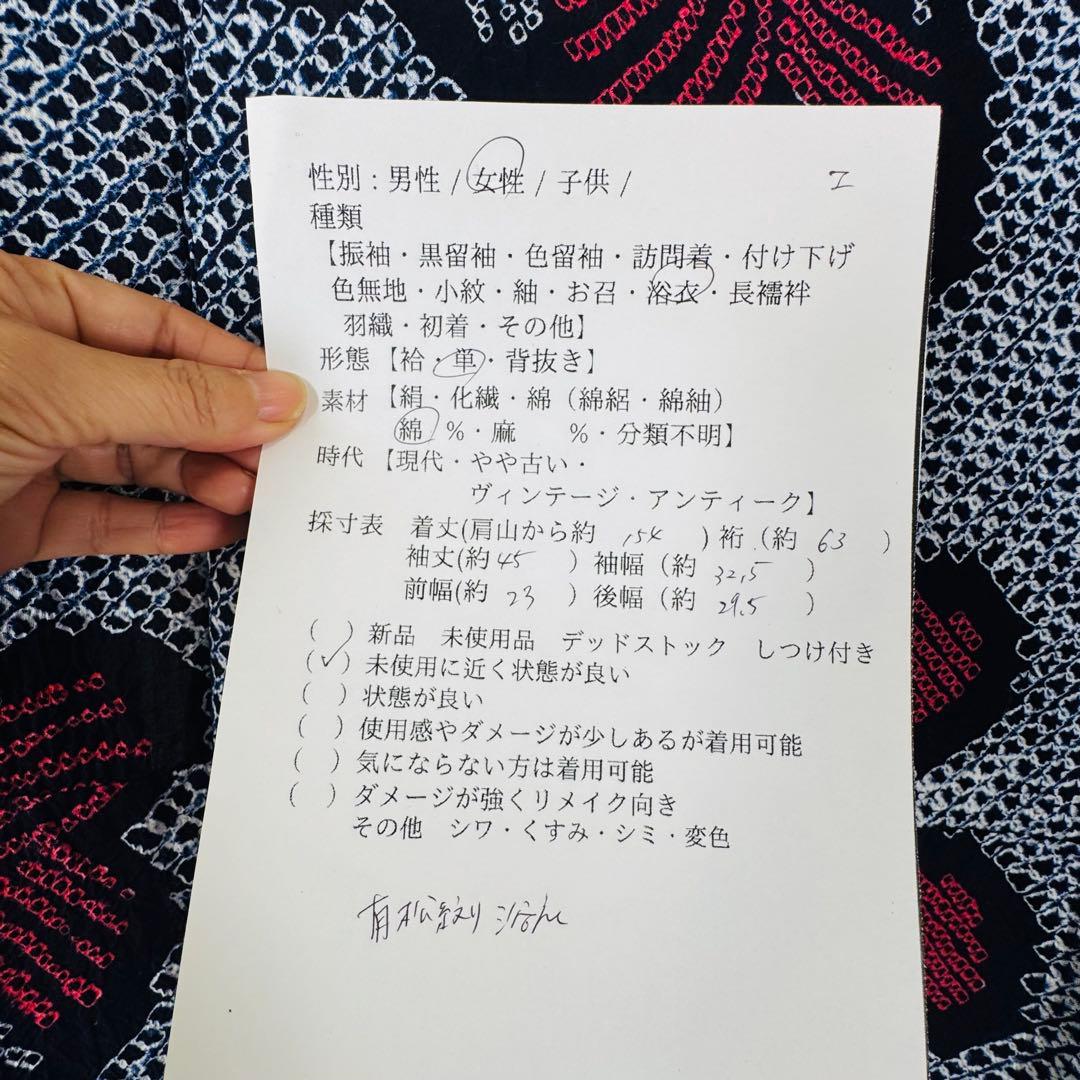 性別：男性 / 女性 / 子供 /
種類
【振袖・黒留袖・色留袖・訪問着・付け下げ
色無地・小紋・紬・お召・浴衣・長襦袢
羽織・初着・その他】
形態【袷・単・背抜き】
素材【絹・化繊・綿（綿絽・綿紬）
綿 %・麻 %・分類不明】
時代【現代・やや古い・
ヴィンテージ・アンティーク】
採寸表 着丈(肩山から約 154 ) 裄（約 63 ）
袖丈(約 45 ）袖幅（約 32,5 ）
前幅(約 23 ）後幅（約 29.5 ）
( ) 新品 未使用品 デッドストック しつけ付き
(✓) 未使用に近く状態が良い
( ) 状態が良い
( ) 使用感やダメージが少しあるが着用可能
( ) 気にならない方は着用可能
( ) ダメージが強くリメイク向き
その他 シワ・くすみ・シミ・変色
有松絞り 浴衣